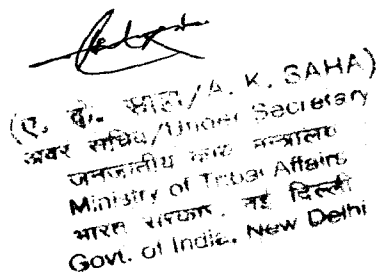 (ए. के. साहा/A. K. SAHA)
अवर सचिव/Under Secretary
जनजातीय कार्य मन्त्रालय
Ministry of Tribal Affairs
भारत सरकार, नई दिल्ली
Govt. of India, New Delhi